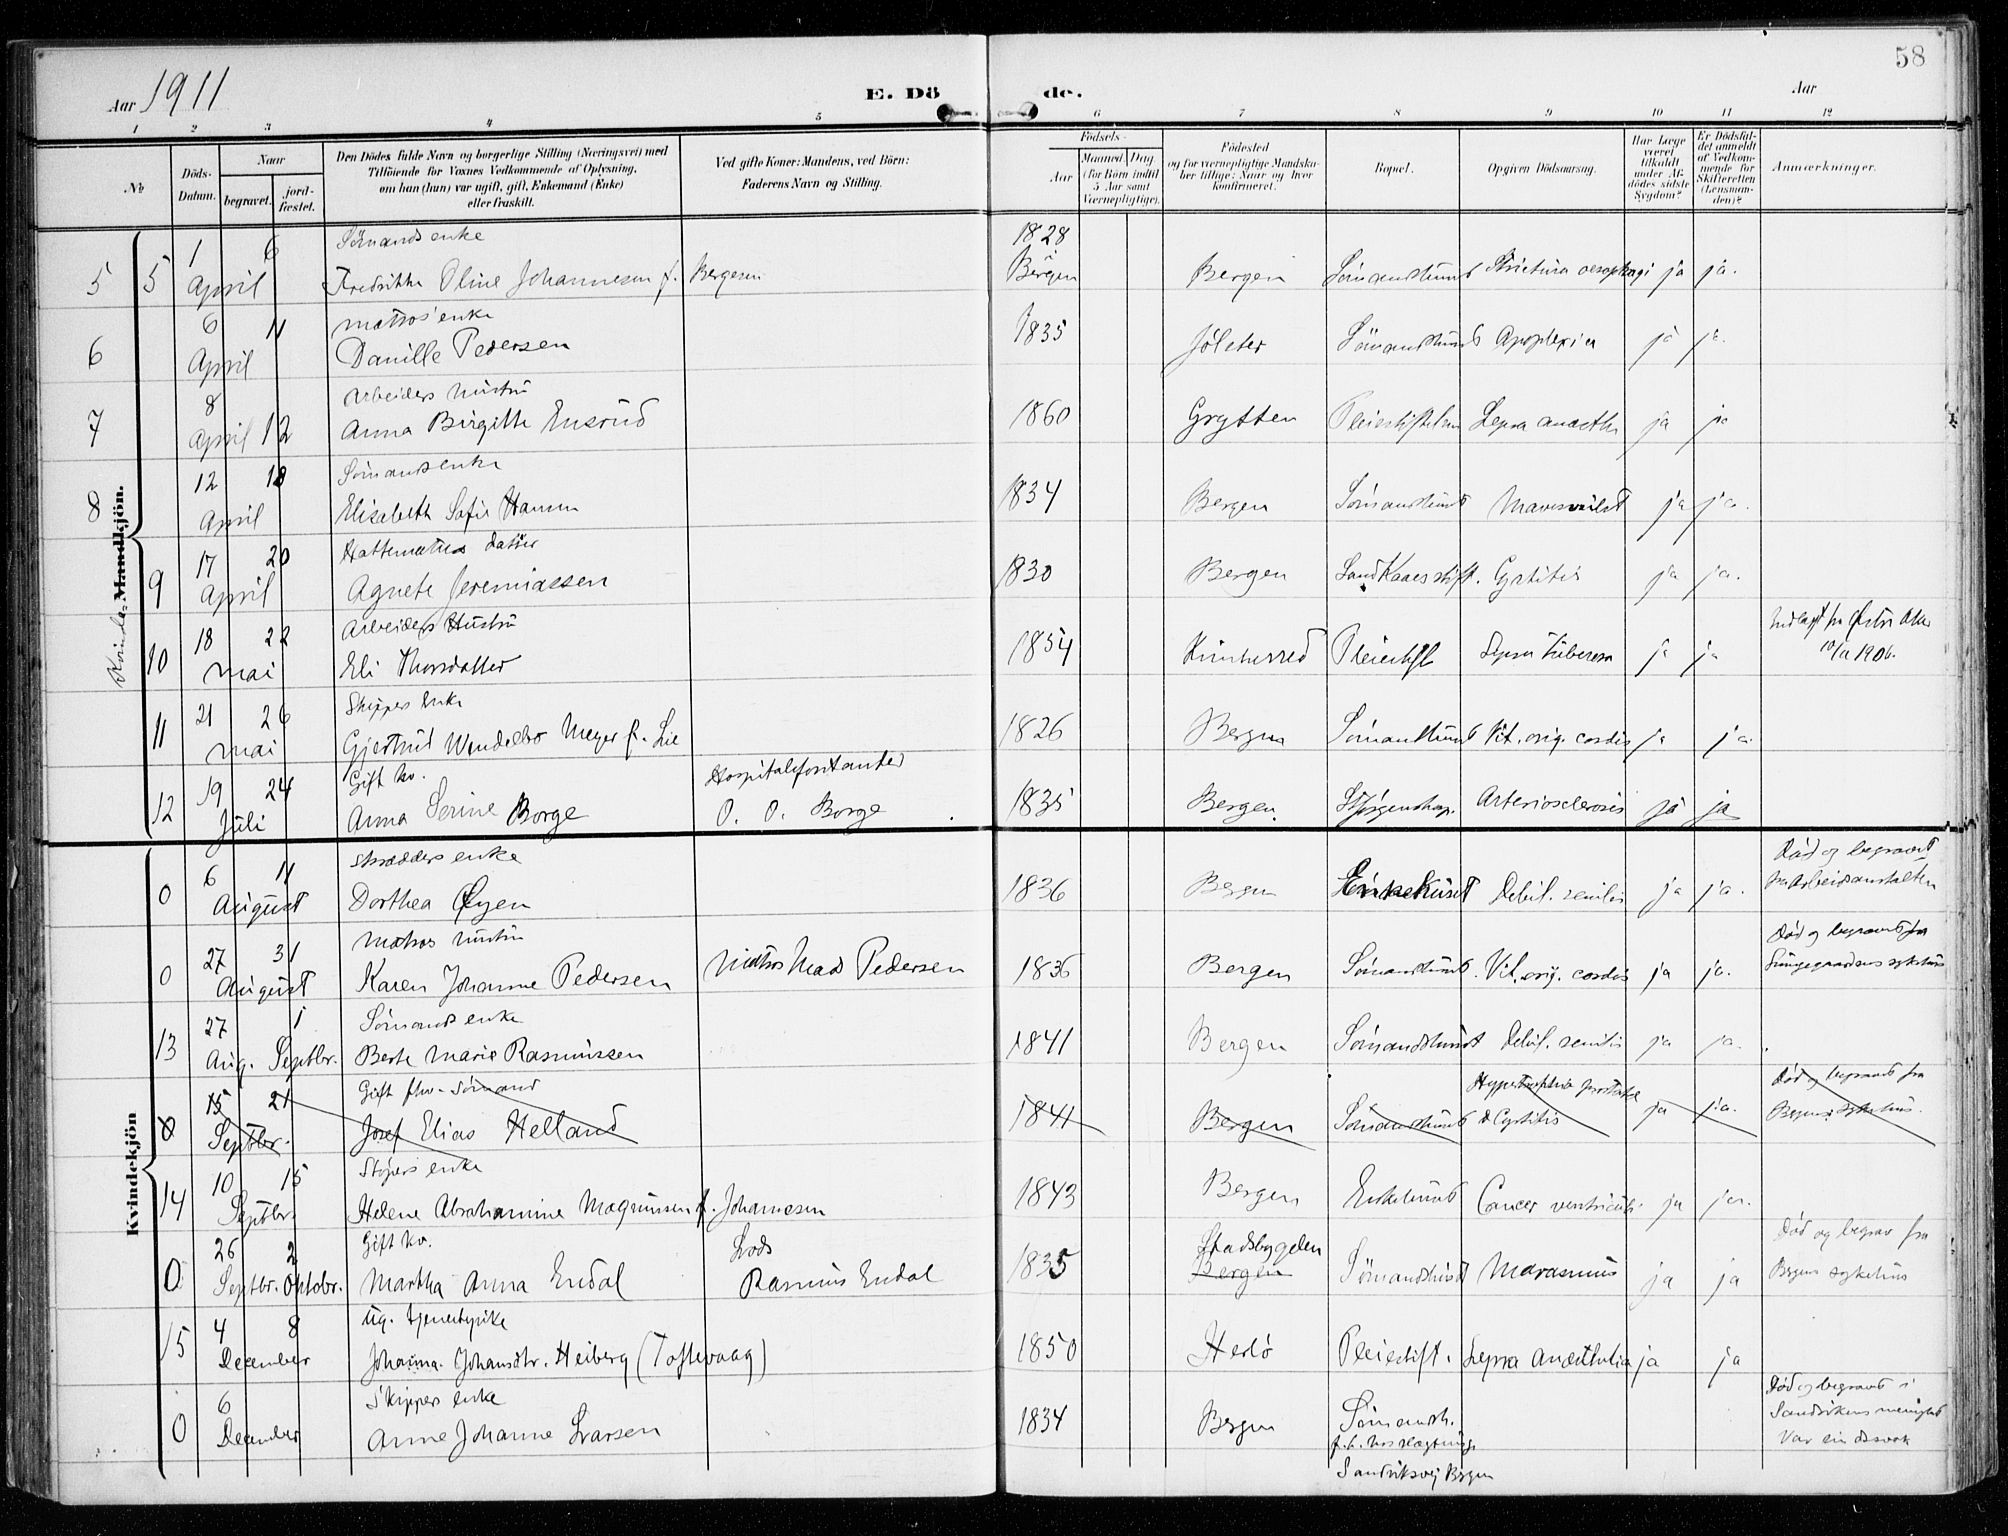 58
Aar 1911
E. Dö de.
Aar
1 2 3 4 5 6 7 8 9 10 11 12
No
Döds-Datum.
Naar
begravet.
jord-fæstet.
Den Dödes fulde Navn og borgerlige Stilling (Næringsvei) med
Tilföiende for Voxnes Vedkommende af Oplysning,
om han (hun) var ugift, gift, Enkemand (Enke)
eller fraskilt.
Ved gifte Koner: Mandens, ved Börn:
Faderens Navn og Stilling.
Födsels-
Aar
Maaned. Dag.
(for Börn indtil
5 Aar samt
Værnepligtige).
Födested
og for værnepligtige Mandska-
ber tillige: Naar og hvor
konfirmeret.
Bopæl.
Opgiven Dödsaarsag.
Har Læge
været
tilkaldt
under Af-
dödes sidste
Sygdom?
Er Dödsfal-
det anmeldt
af Vedkom-
mende for
Skifteretten
(Lensman-
den)?
Anmærkninger.
Kvinde- Mandkjön.
Kvindekjön
5 5 1 April 6 Sömands enke
Fredrikke Oline Johannesen f. Bergesen 1828 Bergen Bergen Strictura oesophagi ja ja.
6 6 April 11 matros' enke
Danille Pedersen 1835 Jölster Apoplexia ja ja.
7 8 April 12 Arbeiders hustru
Anna Birgitte Ensrud 1860 Grytten Pleiestiftelsen Lepra anaesth ja ja
8 12 April 18 Sömands enke
Elisabeth Sofie Hamm 1834 Bergen ja ja.
9 17 April 20 datter
Agnete Jeremiassen 1830 Bergen Cystitis ja ja.
10 18 mai 22 Arbeiders Hustru
Eli Thorsdatter 1854 Pleiestift Lepra tuberosa ja ja 1906.
11 21 mai 26 Skippers Enke
Gjertrud Wendelbo Meyer f. Lie 1826 Bergen Vit. org. cordis ja ja.
12 19 Juli 24 Gift kv.
Anna Serine Borge Hospitalsforstander
O. O. Borge 1835 Bergen Arteriosclerosis ja ja
0 6 August 11 Skrædders enke
Dorthea Öyen 1836 Bergen Enkehuset Debil. senilis ja ja. Död og begravet
fra Arbeidsanstalten
0 27 August 31 Matros hustru
Karen Johanne Pedersen Matros Mads Pedersen 1836 Bergen Vit. org. cordis ja ja. Död og begravet fra
Lungegaardens sykehus
13 27 Aug. 1 Septbr. Sömands enke
Berte Marie Rasmussen 1841 Bergen Debil. senilis ja ja.
0 15 Septbr. 21 Gift fhv. Sömand
Josef Elias Helland 1841 Bergen & Cystitis ja ja. Död og begravet fra
Bergens sykehus.
14 10 Septbr. 15 enke
Helene Abrahamine Magnussen f. Johannesen 1843 Bergen Enkehuset Cancer ventriculi. ja ja.
0 26 Septbr. 2 Oktobr. Gift kv.
Martha Anna Endal Lods
Rasmus Endal 1835 Stadsbygden
Bergen Marasmus ja ja Död og begrav fra
Bergens sykehus
15 4 December 8 Ug. tjenestepike
Johanna Johansdtr. Heiberg (Toftevaag) 1850 Herlö Pleiestift. Lepra Anaesthetica ja ja
0 6 December Skippers enke
Anne Johanne Larsen 1834 Bergen Sömandsh.
Sandviksvei Bergen
Död og begravet i
Sandvikens menighet